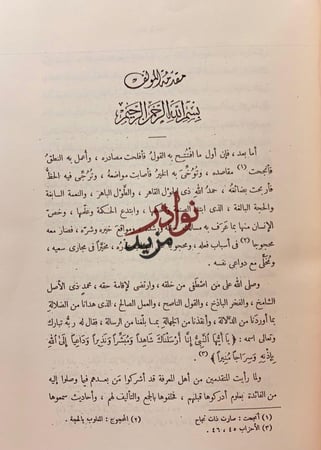 مقدمة المؤلف
بسم الله الرحمن الرحيم
أما بعد ، فإن أول ما افتتح به القول فأفلحت مصادره ، وأعمل به النطق
فأنجحت (١) مقاصده ، وتوخى به الخير فأصابت مواضعه ، وتوخى فيه الحظ
فأربحت بضائعه ، حمد الله ذى الحول القاهر ، والطَّول الباهر ، والنعمة السابغة
والحجة البالغة ، الذى ابتدأ ، وابتدع الحكمة وعلمها ، وخص
الإنسان منها بما عرف به مواقع خيره وشره ، فصار معه
محجوجا (٢) فى أسباب فعله ، ومحجوبا ، مخيرًا فى مجارى سعيه ،
ومُخَلًّى مع دواعى نفسه .
وصلى الله على من اصطفى من خلقه ، وارتضى لإقامة حقه ، محمد ذى الأصل
الشامخ ، والفخر الباذخ ، والقول الناصح ، والعمل الصالح ، الذى هدانا من الضلالة
بما أوردنا من الدلالة ، وأنقذنا من الجهالة بما بلّغنا من الرسالة ، فقال له ربه تبارك
وتعالى اسمه : ﴿ يا أيها النبى إنا أرسلناك شاهدا ومبشرا ونذيرا وداعيا إلى الله
بإذنه وسراجا منيرا ﴾ (٣) .
ولما رأيت المتقدمين من أهل المعرفة قد أشركوا من بعدهم فيما وصلوا إليه
من الفائدة بعلوم أدركوها قبلهم ، فخلفوها بالجمع والتأليف لهم ، وأحاديث سمعوها
(١) أنجحت : صارت ذات نجاح (٢) المحجوج : المغلوب بالحجة .
(٣) الأحزاب ٤٥ ، ٤٦ .
نوادر
مزيد